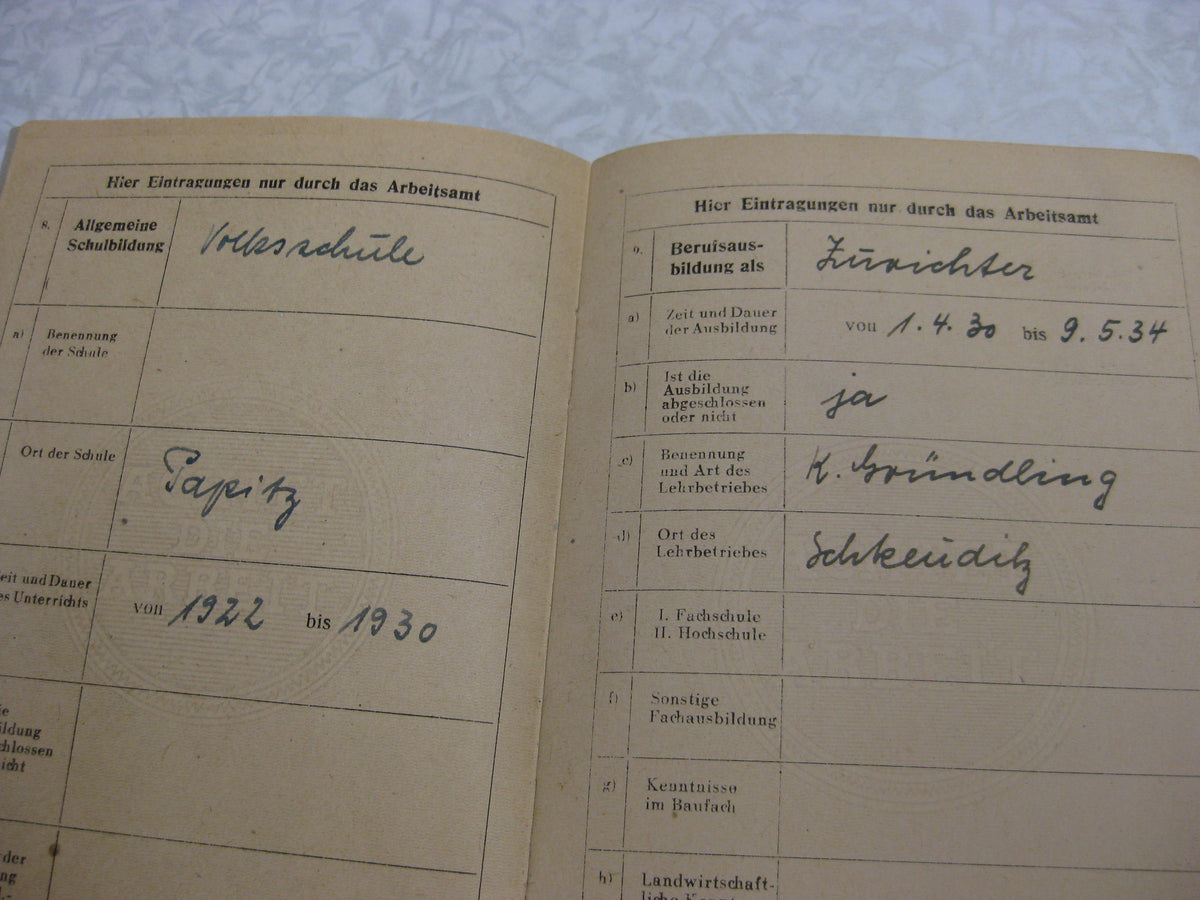 Hier Eintragungen nur durch das Arbeitsamt
8. Allgemeine
Schulbildung
Volksschule
a) Benennung
der Schule
Ort der Schule
Papitz
eit und Dauer
es Unterrichts
von 1922 bis 1930
ie
ildung
chlossen
icht
der
ng
Hier Eintragungen nur durch das Arbeitsamt
9. Berufsaus-
bildung als
Zurichter
a) Zeit und Dauer
der Ausbildung
von 1.4.30 bis 9.5.34
b) Ist die
Ausbildung
abgeschlossen
oder nicht
ja
c) Benennung
und Art des
Lehrbetriebes
K. Gründling
d) Ort des
Lehrbetriebes
Schkeuditz
e) I. Fachschule
II. Hochschule
f) Sonstige
Fachausbildung
g) Kenntnisse
im Baufach
h) Landwirtschaft-
liche